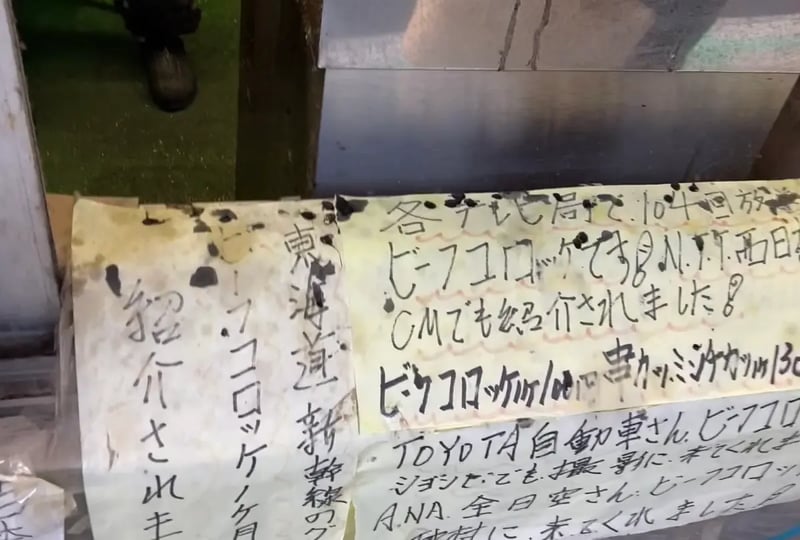 各テレビ局で、10十回放
ビーフコロッケです! N.T.T.西日
CMでも紹介されました!
ビーフコロッケ 100円 串カツ ミンチカツ 130
TOYOTA自動車さん、ビーフコロ
ションでも撮影に、来てくれま
A.N.A. 全日空さん、ビーフコロッ
に、来てくれました
東海道新幹線のグ
ビーフコロッケ1ヶ月
紹介されま